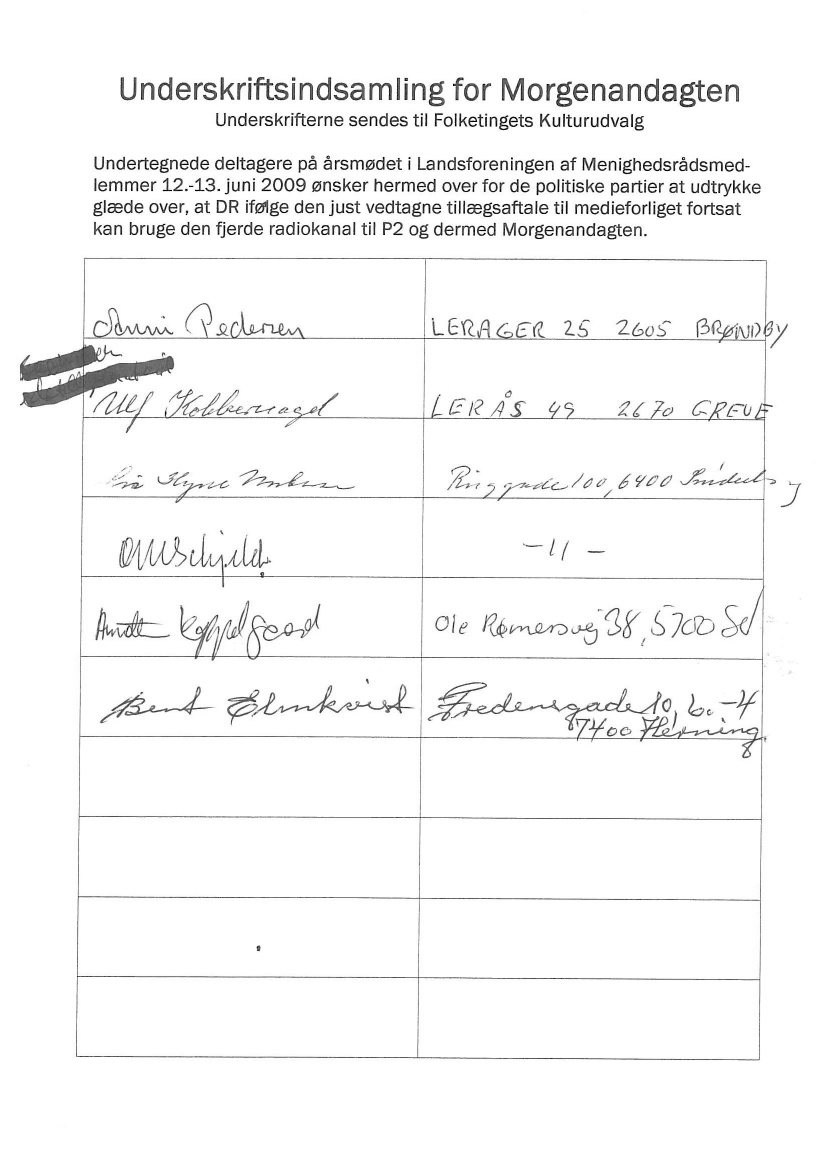 Underskriftsindsamling for Morgenandagten
Underskrifterne sendes til Folketingets Kulturudvalg
Undertegnede deltagere på årsmødet i Landsforeningen af Menighedsrådsmed-
lemmer 12.-13. juni 2009 ønsker hermed over for de politiske partier at udtrykke
glæde over, at DR ifølge den just vedtagne tillægsaftale til medieforliget fortsat
kan bruge den fjerde radiokanal til P2 og dermed Morgenandagten.
Pedersen LERAGER 25 2605 BRØNDBY
Ulf Kobbernagel LERÅS 49 2670 GREVE
Ringgade 100, 6400
-11-
Koppelgaard Ole Rømersvej 38, 5700 Sd
Bent Elmkvist Fredensgade 10, 6.-4
7400 Herning